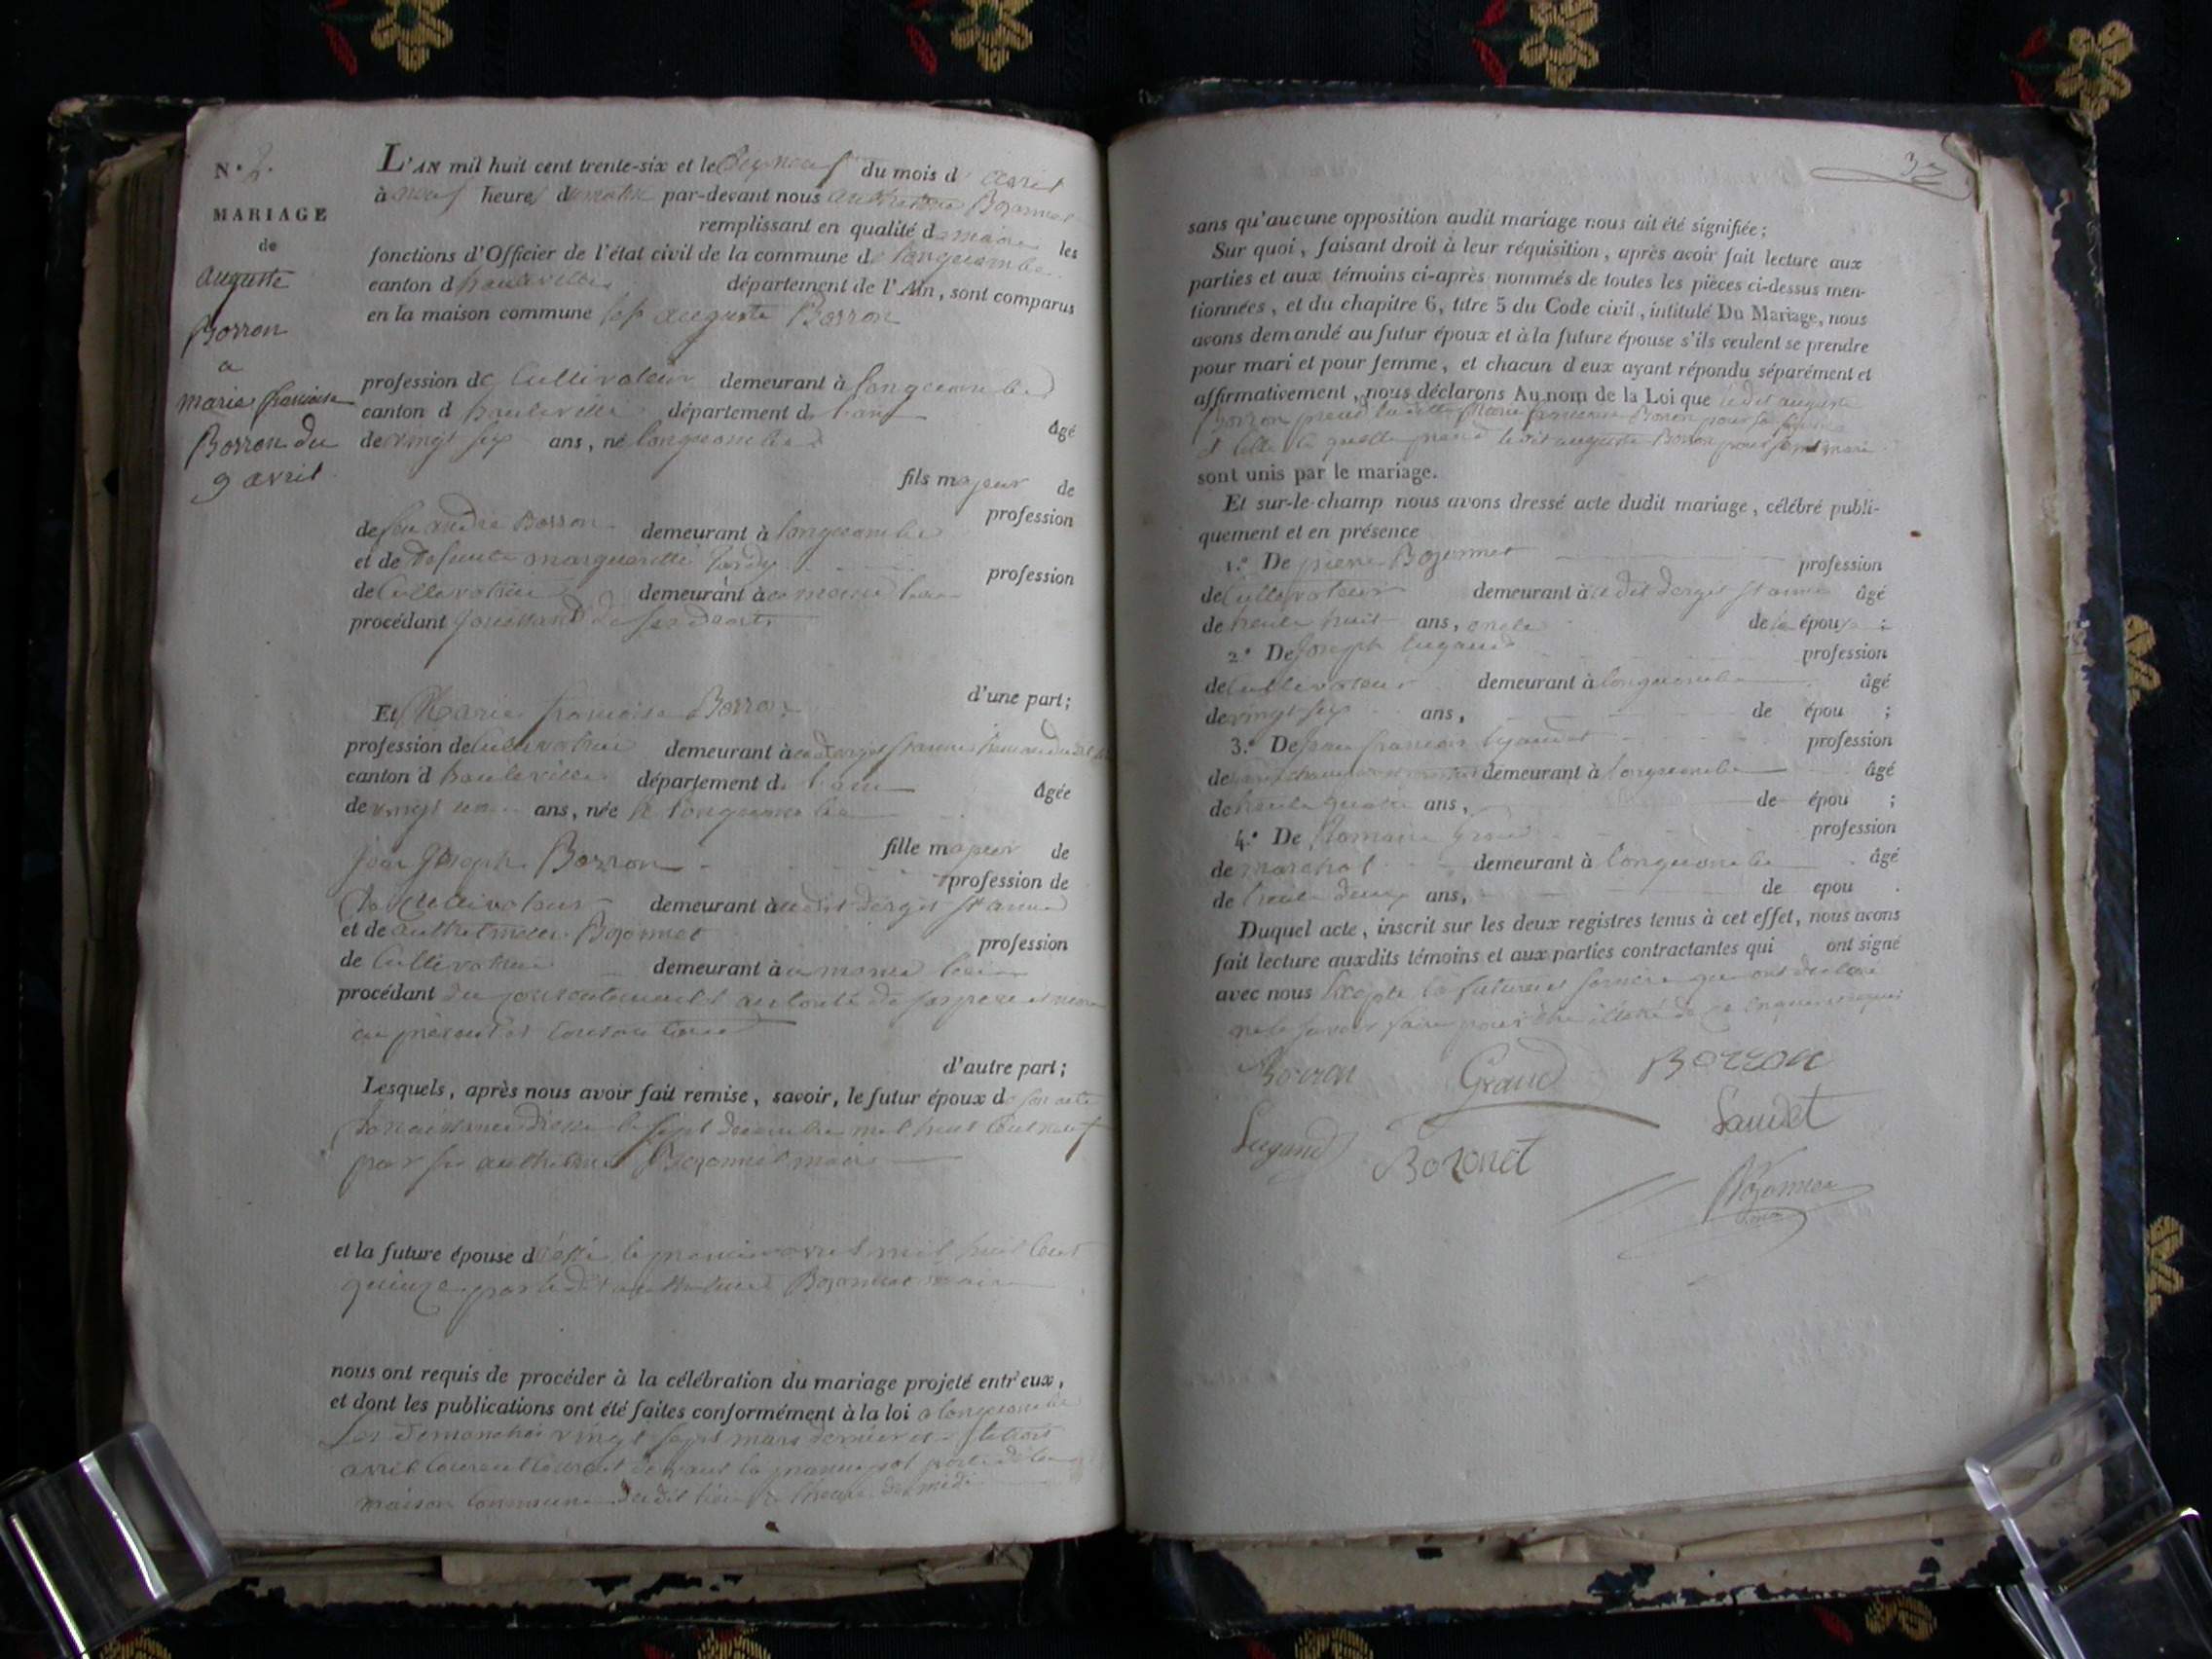 N.° 2.
MARIAGE
de
auguste
Borron
a
marie francoise
Borron du
9 avril
L'AN mil huit cent trente-six et le du mois d' avril
à neuf heures du matin par-devant nous Bozonnet
remplissant en qualité de maire les
fonctions d'Officier de l'état civil de la commune de longecombe
canton d'hauteville département de l'Ain, sont comparus
en la maison commune auguste Borron
profession de Cultivateur demeurant à longecombe
canton d hauteville département de l'ain âgé
de vingt six ans, né longecombe
fils majeur de
de feu andré Borron profession
demeurant à longecombe
et de defunte margueritte tardy profession
de Cultivatrice demeurant à
procédant jouissant de ses droits
d'une part;
Et Marie francoise Borron
profession de Cultivatrice demeurant à
canton d hauteville département de l'ain âgée
de vingt un ans, née à longecombe
fille majeur de
Joseph Borron profession de
Cultivateur demeurant à
et de Bozonnet profession
de Cultivatrice demeurant à
procédant du consentement et autorité de ses pere et mere
au présent et
d'autre part;
Lesquels, après nous avoir fait remise, savoir, le futur époux de son acte
de naissance le sept decembre mil huit cent neuf
par Bozonnet maire
et la future épouse d le premier avril mil huit cent
quinze par ledit Bozonnet maire
nous ont requis de procéder à la célébration du mariage projeté entr'eux,
et dont les publications ont été faites conformément à la loi a longecombe
Les dimanches vingt sept mars dernier et le trois
avril courant devant la principale porte de la
maison commune dudit lieu à l'heure de midi
sans qu'aucune opposition audit mariage nous ait été signifiée;
Sur quoi, faisant droit à leur réquisition, après avoir fait lecture aux
parties et aux témoins ci-après nommés de toutes les pièces ci-dessus men-
tionnées, et du chapitre 6, titre 5 du Code civil, intitulé Du Mariage, nous
avons demandé au futur époux et à la future épouse s'ils veulent se prendre
pour mari et pour femme, et chacun d'eux ayant répondu séparément et
affirmativement, nous déclarons Au nom de la Loi que ledit auguste
Borron prend ladite Marie francoise Borron pour sa femme
et laquelle prend ledit auguste Borron pour son mari
sont unis par le mariage.
Et sur-le-champ nous avons dressé acte dudit mariage, célébré publi-
quement et en présence
1.° De pierre Bozonnet profession
de Cultivateur demeurant à âgé
de trente huit ans, oncle de la épouse ;
2.° De Joseph Lugand profession
de Cultivateur demeurant à longecombe âgé
de vingt six ans, de épou ;
3.° De Jean francois profession
de demeurant à longecombe âgé
de trente quatre ans, de épou ;
4.° De Romain Grand profession
de marechal demeurant à longecombe âgé
de trente deux ans, de épou .
Duquel acte, inscrit sur les deux registres tenus à cet effet, nous avons
fait lecture auxdits témoins et aux parties contractantes qui ont signé
avec nous Excepté la future et sa mère qui ont declaré
ne le savoir faire pour être illétré de ce enquis et requis
Borron Grand Borron
Lugand Bozonet
Bozonnet